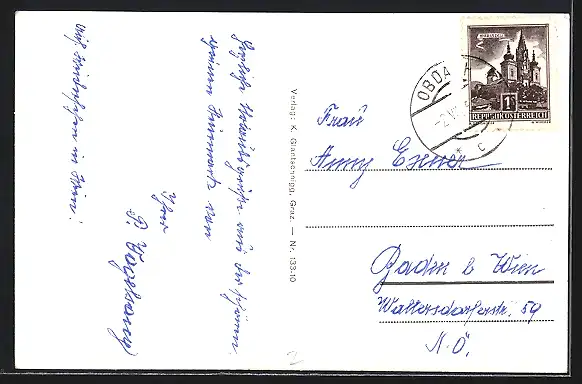 Herzliche Urlaubsgrüße aus der schönen
grünen Steiermark von
Ihrer
Auf Wiedersehen in Wien!
Verlag: K. Glantschnigg, Graz — Nr. 133-10
OBDA
MARIAZELL
1S
REPUBLIK ÖSTERREICH
Frau
Anny Exner
Baden b Wien
Waltersdorferstr. 59
N.Ö.